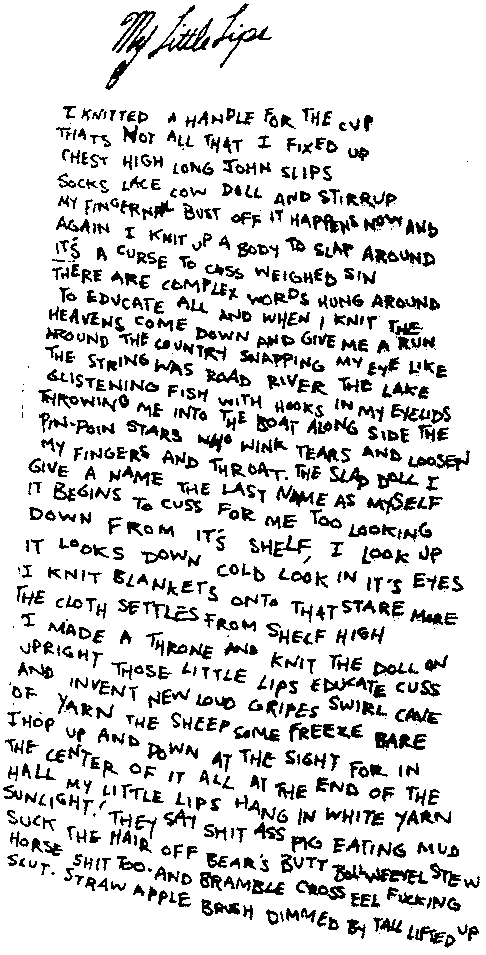 My Little Lips
I KNITTED A HANDLE FOR THE CUP
THATS NOT ALL THAT I FIXED UP
CHEST HIGH LONG JOHN SLIPS
SOCKS LACE COW DOLL AND STIRRUP
MY FINGERNAIL BUST OFF IT HAPPENS NOW AND
AGAIN I KNIT UP A BODY TO SLAP AROUND
IT'S A CURSE TO CUSS WEIGHED SIN
THERE ARE COMPLEX WORDS HUNG AROUND
TO EDUCATE ALL AND WHEN I KNIT THE
HEAVENS COME DOWN AND GIVE ME A RUN
AROUND THE COUNTRY SNAPPING MY EYE LIKE
THE STRING WAS ROAD RIVER THE LAKE
GLISTENING FISH WITH HOOKS IN MY EYELIDS
THROWING ME INTO THE BOAT ALONG SIDE THE
PIN-POIN STARS WHO WINK TEARS AND LOOSEN
MY FINGERS AND THROAT. THE SLAP DOLL I
GIVE A NAME THE LAST NAME AS MYSELF
IT BEGINS TO CUSS FOR ME TOO LOOKING
DOWN FROM IT'S SHELF, I LOOK UP
IT LOOKS DOWN COLD LOOK IN IT'S EYES
I KNIT BLANKETS ONTO THAT STARE MORE
THE CLOTH SETTLES FROM SHELF HIGH
I MADE A THRONE AND KNIT THE DOLL ON
UPRIGHT THOSE LITTLE LIPS EDUCATE CUSS
AND INVENT NEW LOUD GRIPES SWIRL CAVE
OF YARN THE SHEEP SOME FREEZE BARE
I HOP UP AND DOWN AT THE SIGHT FOR IN
THE CENTER OF IT ALL AT THE END OF THE
HALL MY LITTLE LIPS HANG IN WHITE YARN
SUNLIGHT! THEY SAY SHIT ASS PIG EATING MUD
SUCK THE HAIR OFF BEAR'S BUTT BOLLWEEVEL STEW
HORSE SHIT TOO. AND BRAMBLE CROSS EEL FUCKING
SLUT. STRAW APPLE BRUSH DIMMED BY TALL LIFTED UP